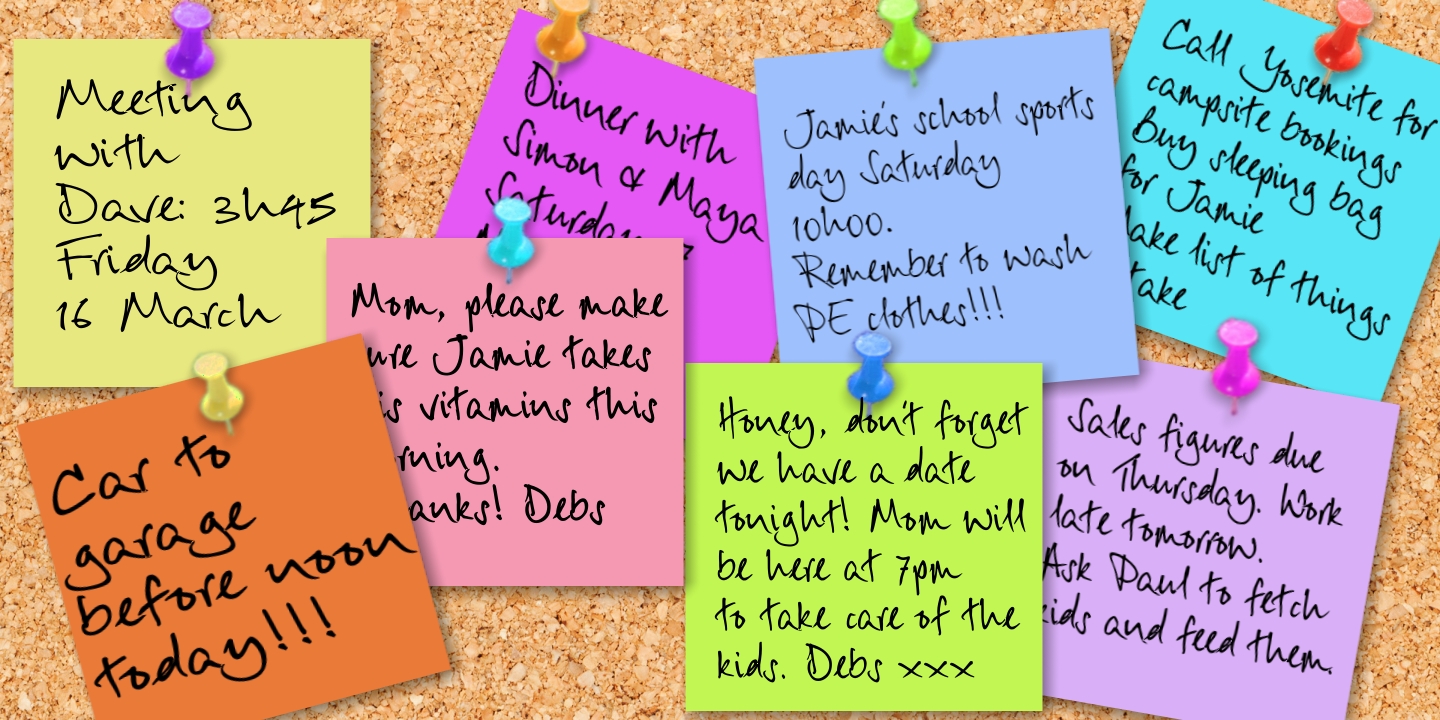 Meeting
with
Dave: 3h45
Friday
16 March
Dinner with
Simon & Maya
Saturday
Jamie's school sports
day Saturday
10h00.
Remember to wash
PE clothes!!!
Call Yosemite for
campsite bookings
Buy sleeping bag
for Jamie
list of things
take
Mom, please make
Jamie takes
vitamins this
Debs
Car to
garage
before noon
today!!!
Honey, don't forget
we have a date
tonight! Mom will
be here at 7pm
to take care of the
kids. Debs xxx
Sales figures due
on Thursday. Work
late tomorrow.
Ask Paul to fetch
kids and feed them.